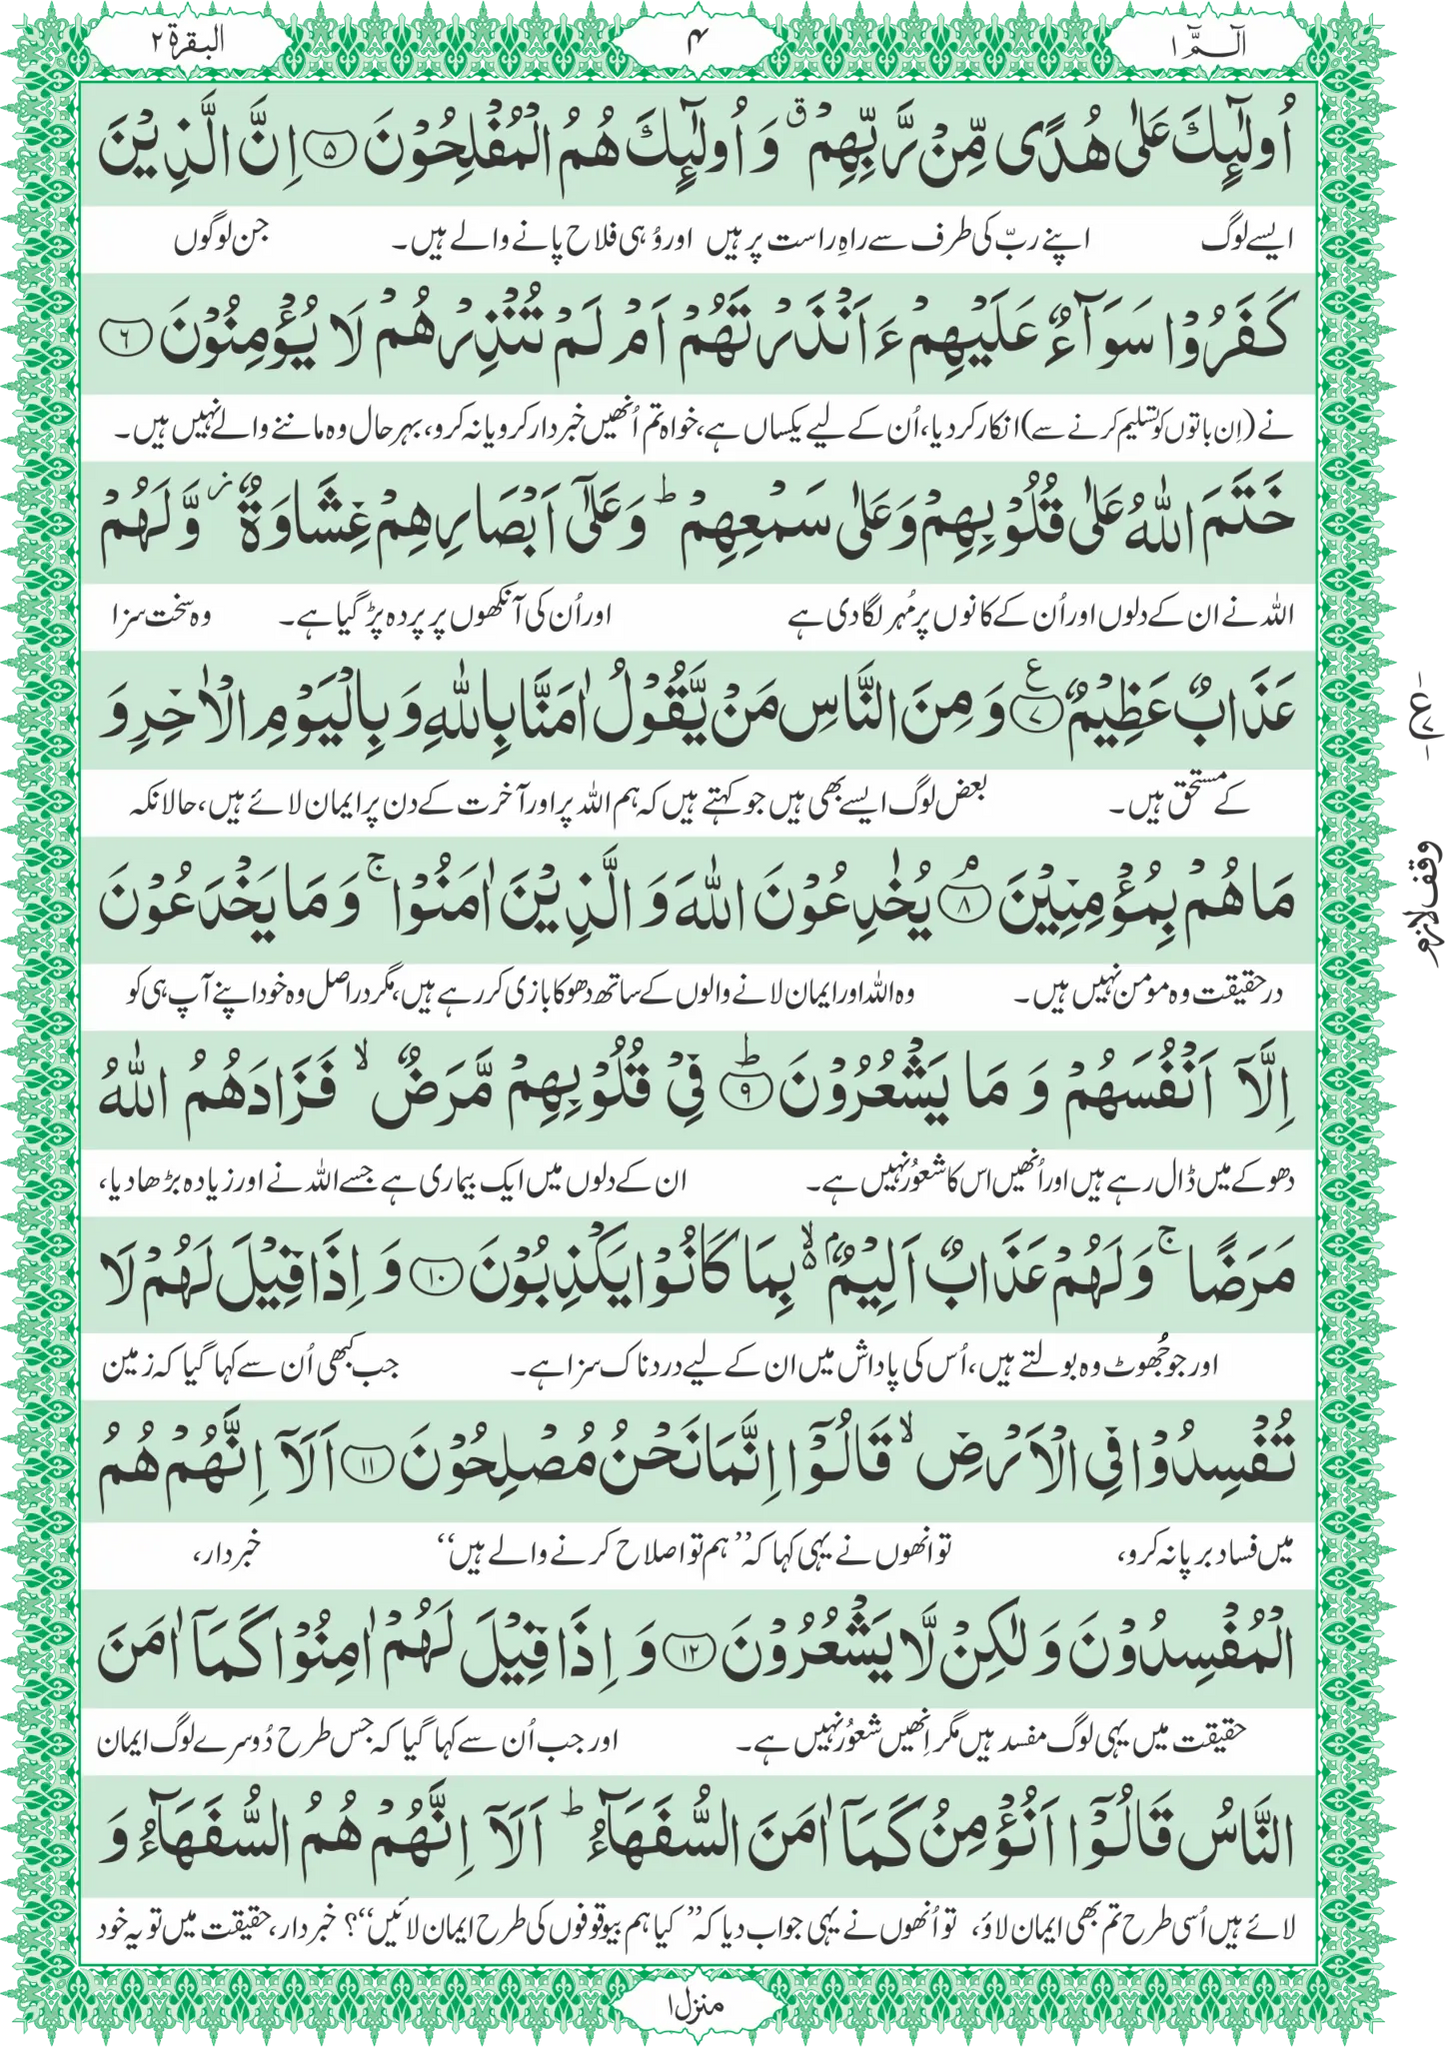 الٓـمّٓ ۱
۴
البقرة ۲
اُولٰٓئِكَ عَلٰى هُدًى مِّنْ رَّبِّهِمْ ۗ وَ اُولٰٓئِكَ هُمُ الْمُفْلِحُوْنَ ۵ اِنَّ الَّذِيْنَ
ایسے لوگ اپنے ربّ کی طرف سے راہِ راست پر ہیں اور وُہی فلاح پانے والے ہیں۔ جن لوگوں
كَفَرُوْا سَوَآءٌ عَلَيْهِمْ ءَاَنْذَرْتَهُمْ اَمْ لَمْ تُنْذِرْهُمْ لَا يُؤْمِنُوْنَ ۶
نے (اِن باتوں کو تسلیم کرنے سے) انکار کر دیا، اُن کے لیے یکساں ہے، خواہ تم اُنھیں خبردار کرو یا نہ کرو، بہرحال وہ ماننے والے نہیں ہیں۔
خَتَمَ اللّٰهُ عَلٰى قُلُوْبِهِمْ وَعَلٰى سَمْعِهِمْ ؕ وَعَلٰٓى اَبْصَارِهِمْ غِشَاوَةٌ ز وَّلَهُمْ
اللہ نے ان کے دلوں اور اُن کے کانوں پر مُہر لگا دی ہے اور اُن کی آنکھوں پر پردہ پڑ گیا ہے۔ وہ سخت سزا
عَذَابٌ عَظِيْمٌ ۷ ع وَ مِنَ النَّاسِ مَنْ يَّقُوْلُ اٰمَنَّا بِاللّٰهِ وَ بِالْيَوْمِ الْاٰخِرِ وَ
کے مستحق ہیں۔ بعض لوگ ایسے بھی ہیں جو کہتے ہیں کہ ہم اللہ پر اور آخرت کے دن پر ایمان لائے ہیں، حالانکہ
مَا هُمْ بِمُؤْمِنِيْنَ ۸ م يُخٰدِعُوْنَ اللّٰهَ وَ الَّذِيْنَ اٰمَنُوْا ۚ وَ مَا يَخْدَعُوْنَ
وقف لازم
در حقیقت وہ مومن نہیں ہیں۔ وہ اللہ اور ایمان لانے والوں کے ساتھ دھوکا بازی کر رہے ہیں، مگر دراصل وہ خود اپنے آپ ہی کو
اِلَّآ اَنْفُسَهُمْ وَ مَا يَشْعُرُوْنَ ۹ ؕ فِيْ قُلُوْبِهِمْ مَّرَضٌ ۙ فَزَادَهُمُ اللّٰهُ
دھوکے میں ڈال رہے ہیں اور اُنھیں اس کا شعُور نہیں ہے۔ ان کے دلوں میں ایک بیماری ہے جسے اللہ نے اور زیادہ بڑھا دیا،
مَرَضًا ۚ وَ لَهُمْ عَذَابٌ اَلِيْمٌۢ ۙ۵ بِمَا كَانُوْا يَكْذِبُوْنَ ۱۰ وَ اِذَا قِيْلَ لَهُمْ لَا
اور جو جُھوٹ وہ بولتے ہیں، اُس کی پاداش میں ان کے لیے دردناک سزا ہے۔ جب کبھی اُن سے کہا گیا کہ زمین
تُفْسِدُوْا فِي الْاَرْضِ ۙ قَالُوْٓا اِنَّمَا نَحْنُ مُصْلِحُوْنَ ۱۱ اَلَآ اِنَّهُمْ هُمُ
میں فساد برپا نہ کرو، تو انھوں نے یہی کہا کہ ”ہم تو اصلاح کرنے والے ہیں“ خبردار،
الْمُفْسِدُوْنَ وَ لٰكِنْ لَّا يَشْعُرُوْنَ ۱۲ وَ اِذَا قِيْلَ لَهُمْ اٰمِنُوْا كَمَآ اٰمَنَ
حقیقت میں یہی لوگ مفسد ہیں مگر اِنھیں شعُور نہیں ہے۔ اور جب اُن سے کہا گیا کہ جس طرح دُوسرے لوگ ایمان
النَّاسُ قَالُوْٓا اَنُؤْمِنُ كَمَآ اٰمَنَ السُّفَهَآءُ ؕ اَلَآ اِنَّهُمْ هُمُ السُّفَهَآءُ وَ
لائے ہیں اُسی طرح تم بھی ایمان لاؤ، تو اُنھوں نے یہی جواب دیا کہ ”کیا ہم بیوقوفوں کی طرح ایمان لائیں“؟ خبردار، حقیقت میں تو یہ خود
منزل ۱